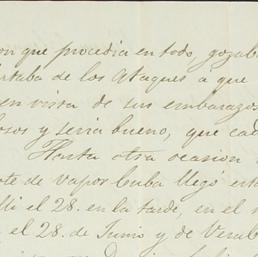 con que procedia en todo, gozab
rtaba de los Ataques a que
en virra de sus embarazos
osos y seria bueno, que cad
Hasta otra ocasion
te de vapor Cuba llegó est
el 28. en la tarde, en el
el 28. de Junio y de Verac